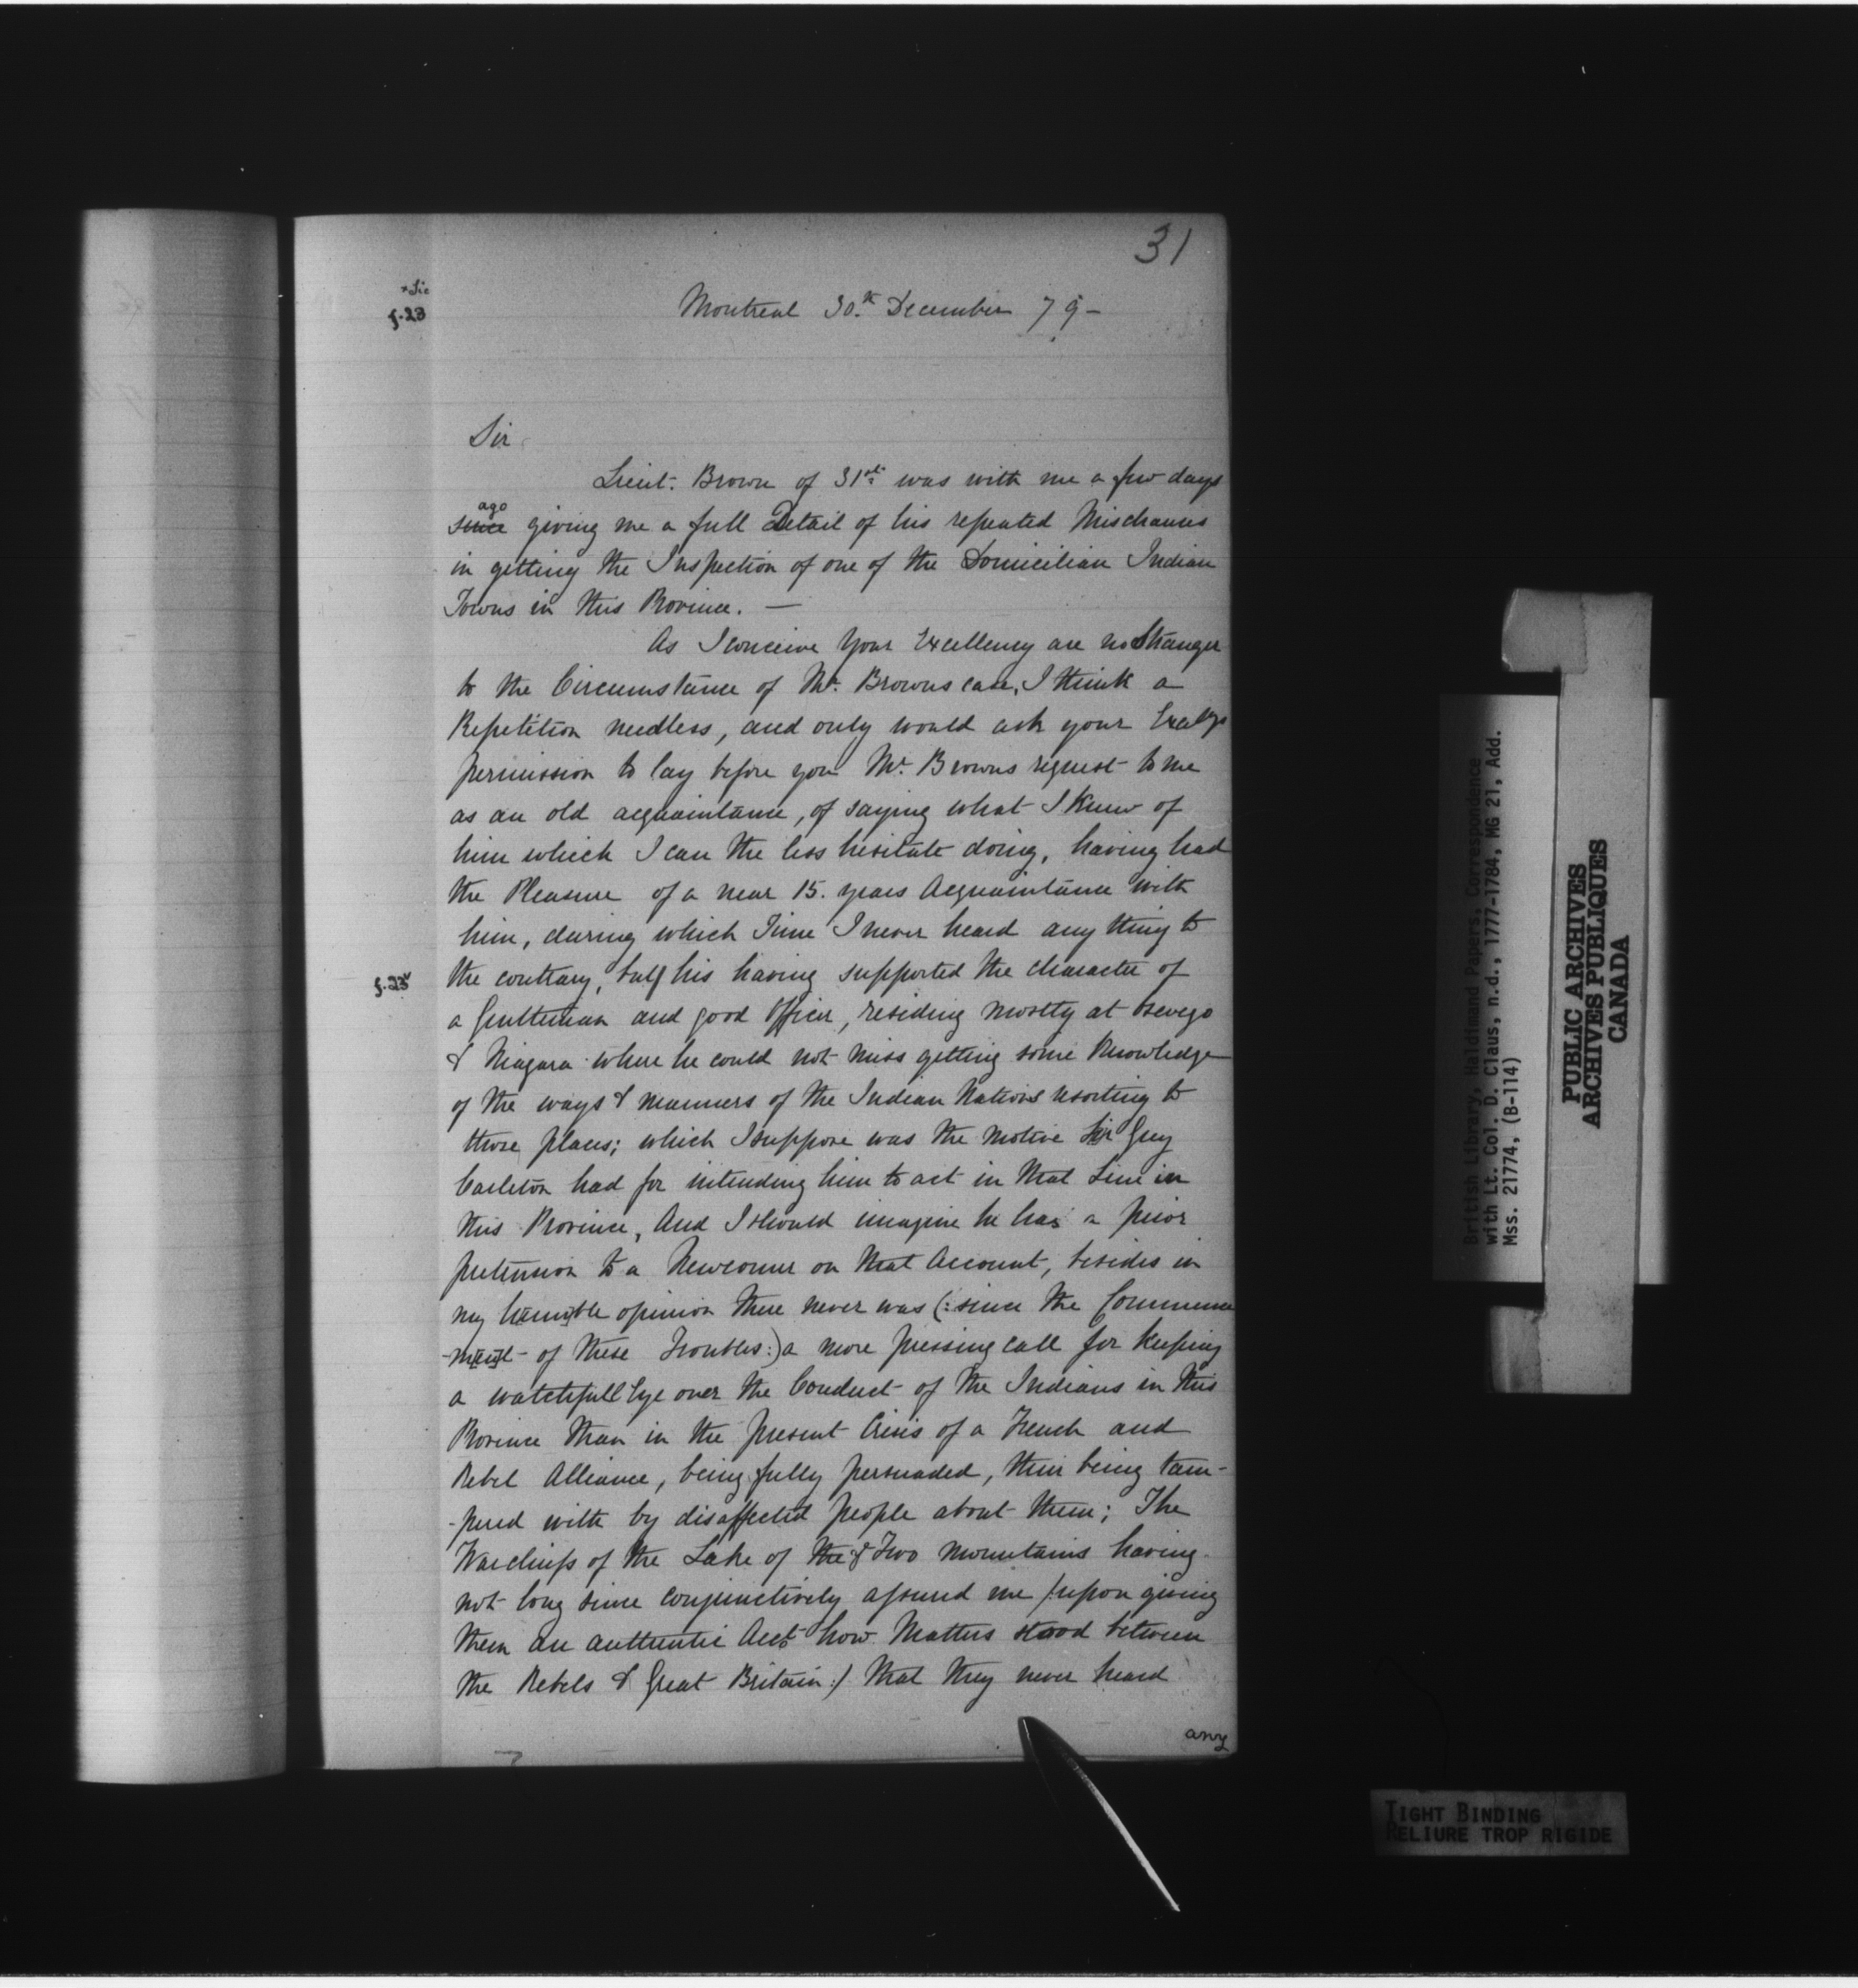 31
*Sic
f.23
Montreal 30.th December 79-
Sir
Lieut. Brown of 31st was with me a few days
since ago giving me a full Detail of his repeated Mischances
in getting the Inspection of one of the Domicilian Indian
Towns in this Province. —
As I conceive Your Excellency are no Stranger
to the Circumstance of Mr. Browns case, I think a
Repetition needless, and only would ask your Excellys
permission to lay before you Mr. Browns request to me
as an old acquaintance, of saying what I knew of
him which I can the less hesitate doing, having had
the Pleasure of a near 15. years Acquaintance with
him, during which Time I never heard any thing to
f.23v
the contrary, but his having supported the character of
a Gentleman and good Officer, residing mostly at Oswego
& Niagara where he could not miss getting some Knowledge
of the ways & manners of the Indian Nations resorting to
those places; which I suppose was the motive Sir Guy
Carleton had for intending him to act in that Line in
this Province, And I should imagine he has a prior
pretension to a Newcomer on that Account, besides in
my humble opinion there never was (: since the Commence
-ment of these Troubles:) a more pressing call for keeping
a watchfull Eye over the Conduct of the Indians in this
Province than in the present Crisis of a French and
Rebel Alliance, being fully persuaded, their being tam-
-pered with by disaffected people about them; The
Warchiefs of the Lake of the Two Mountains having
not long since conjunctively assured me /: upon giving
them an authentic Acct. how Matters stood between
the Rebels & Great Britain :/ that they never heard
any
British Library, Haldimand Papers, Correspondence
with Lt. Col. D. Claus, n.d., 1777-1784, MG 21, Add.
Mss. 21774, (B-114)
PUBLIC ARCHIVES
ARCHIVES PUBLIQUES
CANADA
TIGHT BINDING
RELIURE TROP RIGIDE